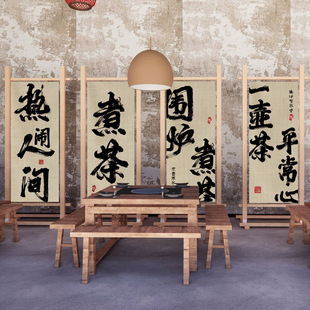 热闹
人间
煮茶
围炉
煮茶
一壶茶
平常心